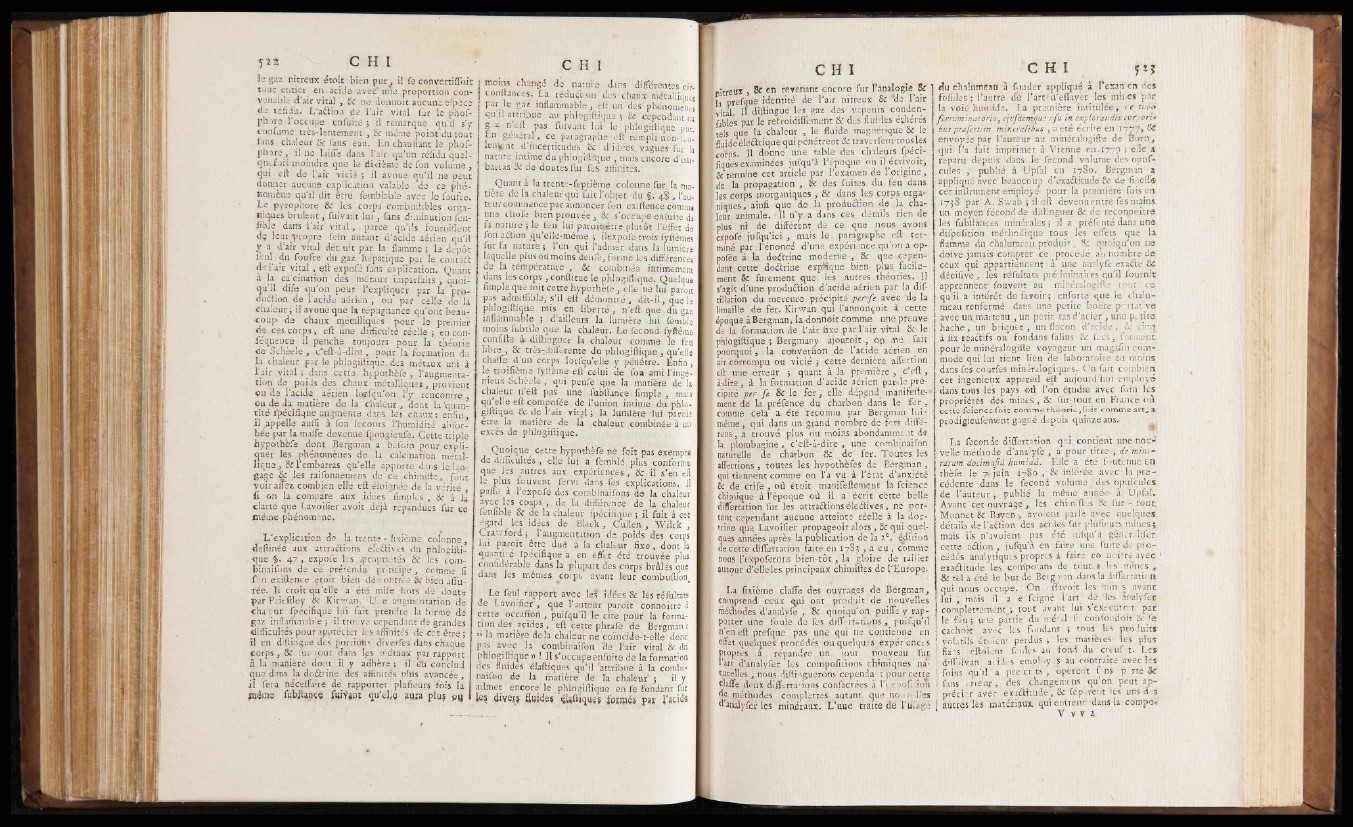 522 C H I
le gaz nitreux étoit bien pur, il ſe convertiſſoit
tout entier en acide avec une proportion con-
venable d'air vital, & ne donnoit aucune eſpèce
de réſidu. L'action de l'air vital ſur le phoſ-
phore l'occupe enſuite ; il remarque qu'il s'y
conſume très-lentement, & même point du tout
ſans chaleur & ſans eau. En chauffant le phoſ-
phore, il ne laiſſe dans l'air qu'un réſidu quel-
quefois moindre que le dixième de ſon volume,
qui eſt de l'air vicié ; il avoue qu'il ne peut
donner aucune explication valable de ce phé-
nomène qu'il dit être ſemblable avec le ſoufre.
Le pyrophore & les corps combuſtibles orga-
niques brulent, ſuivant lui, ſans diminution ſen-
ſible dans l'air vital, parce qu'ils fourniſſent
de leur propre ſein autant d'acide aérien qu'il
y a d'air vital détruit par la flamme ; le dépôt
ſeul du ſoufre du gaz hépatique par le contact
de l'air vital, eſt expoſé ſans explication. Quant
à la calcination des métaux imparfaits, quoi-
qu'il diſe qu'on peut l'expliquer par la pro-
duction de l'acide aérien, ou par celle de la
chaleur ; il avoue que la répugnance qu'ont beau-
coup de chaux métalliques pour le premier
de ces corps, eſt une difficulté réelle ; en con-
ſéquence il penche toujours pour la théorie
de Schéele, c'eſt-à-dire, pour la formation de
la chaleur par le phlogiſtique des métaux uni à
l'air vital ; dans cette hypothèſe, l'augmenta-
tion de poids des chaux métalliques, provient
ou de l'acide aérien lorſqu'on l'y rencontre,
ou de la matière de la chaleur, dont la quan-
tité ſpécifique augmente dans les chaux ; enfin,
il appelle auſſi à ſon ſecours l'humidité abſor-
bée par la maſſe devenue ſpongieuſe. Cette triple
hypothèſe dont Bergman a beſoin pour expli-
quer les phénomènes de la calcination métal-
lique, & l'embarras qu'elle apporte dans le lan-
gage & les raiſonnemens de ce chimiſte, font
voir aſſez combien elle eſt éloignée de la vérité,
ſi on la compare aux idées ſimples, & à la
clarté que Lavoiſier avoit déjà répandues ſur ce
même phénomène.
L'explication de la trente-ſixième colonne,
deſtinée aux attractions électives du phlogiſti-
que §. 47, expoſe les propriétés & les com-
binaiſons de ce prétendu principe, comme ſi
ſon exiſtence étoit bien démontrée & bien aſſu-
rée. Il croit qu'elle a été miſe hors de doute
par Prieſtley & Kirwan. Une augmentation de
chaleur ſpécifique lui fait prendre la forme de
gaz inflammable ; il trouve cependant de grandes
difficultés pour apprécier les affinités de cet être ;
il en diſtingue des portions diverſes dans chaque
corps, & ſur-tout dans les métaux par rapport
à la manière dont il y adhère ; il en conclud
que dans la doctrine des affinités plus avancée,
il ſera néceſſaire de rapporter pluſieurs fois la
même ſubſtance ſuivant qu'elle aura plus ou
C H I
moins changé de nature dans différentes cir-
conſtances. La réduction des chaux métalliques
par le gaz inflammable, eſt un des phénomènes
qu'il attribue au phlogiſtique ; & cependant ce
gaz n'eſt pas ſuivant lui le phlogiſtique pur.
En général, ce paragraphe eſt rempli non-ſeu-
lement d'incertitudes & d'idées vagues ſur la
nature intime du phlogiſtique, mais encore d'em-
barras & de doutes ſur ſes affinités.
Quant à la trente-ſeptième colonne ſur la ma-
tière de la chaleur qui fait l'objet du §. 48, l'au-
teur commence par annoncer ſon exiſtence comme
une choſe bien prouvée, & s'occupe enſuite de
ſa nature ; le feu lui paroit être plutôt l'effet de
ſon action qu'elle-même ; il expoſe trois ſyſtêmes
ſur ſa nature ; l'un qui l'admet dans la lumière
laquelle plus ou moins denſe, forme les différences
de la température, & combinée intimement
dans les corps, conſtitue le phlogiſtique. Quelque
ſimple que ſoit cette hypothèſe, elle ne lui paroit
pas admiſſible, s'il eſt démontré, dit-il, que le
phlogiſtique mis en liberté, n'eſt que du gaz
inflammable ; d'ailleurs la lumière lui ſemble
moins ſubtile que la chaleur. Le ſecond ſyſtême
conſiſte à diſtinguer la chaleur comme le feu
libre, & très-différente du phlogiſtique, qu'elle
chaſſe d'un corps lorſqu'elle y pénètre. Enfin,
le troiſième ſyſtême eſt celui de ſon ami l'ingé-
nieux Schéele, qui penſe que la matière de la
chaleur n'eſt pas une ſubſtance ſimple, mais
qu'elle eſt compoſée de l'union intime du phlo-
giſtique & de l'air vital ; la lumière lui paroit
être la matière de la chaleur combinée à un
excès de phlogiſtique.
Quoique cette hypothèſe ne ſoit pas exempte
de difficultés, elle lui a ſemblé plus conforme
que les autres aux expériences, & il s'en eſt
le plus ſouvent ſervi dans ſes explications. Il
paſſe à l'expoſé des combinaiſons de la chaleur
avec les corps, de la différence de la chaleur
ſenſible & de la chaleur ſpécifique ; il ſuit à cet
égard les idées de Black, Cullen, Wilck,
Crawford ; l'augmentation de poids des corps
lui paroit être due à la chaleur fixe, dont la
quantité ſpécifique a en effet été trouvée plus
conſidérable dans la plupart des corps brûlés que
dans les mêmes corps avant leur combuſtion.
Le ſeul rapport avec les idées & les réſultats
de Lavoiſier, que l'auteur paroit connoitre à
cette occaſion, puiſqu'il le cite pour la forma-
tion des acides, eſt cette phraſe de Bergman :
» la matière de la chaleur ne coincide-t-elle donc
pas avec la combinaiſon de l'air vital & du
phlogiſtique » ! Il s'occupe enſuite de la formation
des fluides élaſtiques qu'il attribue à la combi-
naiſon de la matière de la chaleur ; il y
admet encore le phlogiſtique en ſe fondant ſur
les divers fluides élaſtiques formés par l'acide
C H I
nitreux, & en revenant encore ſur l'analogie &
la preſque identité de l'air nitreux & de l'air
vital. Il diſtingue les gaz des vapeurs conden-
ſables par le refroidiſſement & des fluides éthérés
tels que la chaleur, le fluide magnétique & le
fluide électrique qui pénètrent & traverſent tous les
corps. Il donne une table des chaleurs ſpéci-
fiques examinées juſqu'à l'époque où il écrivoit,
& termine cet article par l'examen de l'origine,
de la propagation, & des ſuites du feu dans
les corps inorganiques, & dans les corps orga-
niques, ainſi que de la production de la cha-
leur animale. Il n'y a dans ces détails rien de
plus ni de différent de ce que nous avons
expoſé juſqu'ici, mais le paragraphe eſt ter-
miné par l'énoncé d'une expérience qu'on a op-
poſée à la doctrine moderne, & que cepen-
dant cette doctrine explique bien plus facile-
ment & ſurement que les autres théories. Il
s'agit d'une production d'acide aérien par la diſ-
tillation du mercure précipité per-ſe avec de la
limaille de fer. Kirwan qui l'annonçoit à cette
époque à Bergman, la donnoit comme une preuve
de la formation de l'air fixe par l'air vital & le
phlogiſtique ; Bergman y ajoutoit, on ne ſait
pourquoi, la converſion de l'acide aérien en
air corrompu ou vicié ; cette dernière aſſertion
eſt une erreur ; quant à la première, c'eſt-
à-dire, à la formation d'acide aérien par le pré-
cipité per ſe & le fer, elle dépend manifeſte-
ment de la préſence du charbon dans le fer,
comme cela a été reconnu par Bergman lui-
même, qui dans un grand nombre de fers diffé-
rens, a trouvé plus ou moins abondamment de
la plombagine, c'eſt-à-dire, une combinaiſon
naturelle de charbon & de fer. Toutes les
aſſertions, toutes les hypothèſes de Bergman,
qui tiennent comme on l'a vu à l'état d'anxiété
& de criſe, où étoit manifeſtement la ſcience
chimique à l'époque où il a écrit cette belle
diſſertation ſur les attractions électives, ne por-
tent cependant aucune atteinte réelle à la doc-
trine que Lavoiſier propageoit alors, & qui quel-
ques années après la publication de la 2e. édition
de cette diſſertation faite en 1783, a eu, comme
nous l'expoſerons bien-tôt, la gloire de rallier
autour d'elle les principaux chimiſtes de l'Europe.
La ſixième claſſe des ouvrages de Bergman,
comprend ceux qui ont produit de nouvelles
méthodes d'analyſe, & quoiqu'on puiſſe y rap-
porter une foule de ſes diſſertations, puiſqu'il
n'en eſt preſque pas une qui ne contienne en
effet quelques procédés ou quelques expériences
propres à répandre un jour nouveau ſur
l'art d'analyſer les compoſitions chimiques na-
turelles, nous diſtinguerons cependant pour cette
claſſe deux diſſertations conſacrées à l'expoſition
de méthodes complettes autant que nouvelles
d'analyſer les minéraux. L'une traite de l'uſage
C H I 523
du chalumeau à ſouder appliqué à l'examen des
foſſiles ; l'autre de l'art d'eſſayer les mines par
la voie humide. La première intitulée, de tubo
ferruminatorio, ejuſdemque uſu in explorandis corpori-
bus præſertim mineralibus, a été écrite en 1777, &
envoyée par l'auteur au minéralogiſte de Born,
qui l'a fait imprimer à Vienne en 1779 ; elle a
reparu depuis dans le ſecond volume des opuſ-
cules, publié à Upſal en 1780. Bergman a
appliqué avec beaucoup d'exactitude & de fineſſe
cet inſtrument employé pour la première fois en
1738 par A. Swab ; il eſt devenu entre ſes mains
un moyen fécond de diſtinguer & de reconnoitre
les ſubſtances minérales ; il a préſenté dans une
diſpoſition méthodique tous les effets que la
flamme du chalumeau produit, & quoiqu'on ne
doive jamais compter ce procédé au nombre de
ceux qui appartiennent à une analyſe exacte &
déciſive, les réſultats préliminaires qu'il fournit
apprennent ſouvent au minéralogiſte tout ce
qu'il a intérêt de ſavoir ; enſorte que le chalu-
meau renfermé dans une petite boete portative
avec un marteau, un petit tas d'acier, une petite
hache, un briquet, un flacon d'acide, & cinq
à ſix réactifs ou fondans ſalins & ſecs, forment
pour le minéralogiſte voyageur un magaſin com-
mode qui lui tient lieu de laboratoire au moins
dans ſes courſes minéralogiques. On ſait combien
cet ingénieux appareil eſt aujourd'hui employé
dans tous les pays où l'on étudie avec ſoin les
propriétés des mines, & ſur-tout en France où
cette ſcience ſoit comme théorie, ſoit comme art, a
prodigieuſement gagné depuis quinze ans.
La ſeconde diſſertation qui contient une nou-
velle méthode d'analyſe, a pour titre, de mine-
rarum docimaſiâ humidâ. Elle a été ſoutenue en
thèſe le 7 juin 1780, & inſérée avec la pré-
cédente dans le ſecond volume des opuſcules
de l'auteur, publié la même année à Upſal.
Avant cet ouvrage, les chimiſtes & ſur-tout
Monnet & Bayen, avoient parlé avec quelques
détails de l'action des acides ſur pluſieurs mines ;
mais ils n'avoient pas été juſqu'à généraliſer
cette action, juſqu'à en faire une ſuite de pro-
cédés analytiques propres à faire connoitre avec
exactitude les compoſans de toutes les mines,
& tel a été le but de Bergman dans la diſſertation
qui nous occupe. On eſſayoit les mines avant
lui, mais il a enſeigné l'art de les analyſer
complettement ; tout avant lui s'exécutoit par
le feu ; une partie du métal ſe confondoit & ſe
cachoit avec les fondans ; tous les produits
volatils étoient perdus ; les matières les plus
fixes reſtoient ſeules au fond du creuſet. Les
diſſolvans acides employés au contraire avec les
ſoins qu'il a preſcrits, opèrent ſans perte &
ſans erreur, des changemens qu'on peut ap-
précier avec exactitude, & ſéparent les uns des
autres les matériaux qui entrent dans la compo-
V v v 2